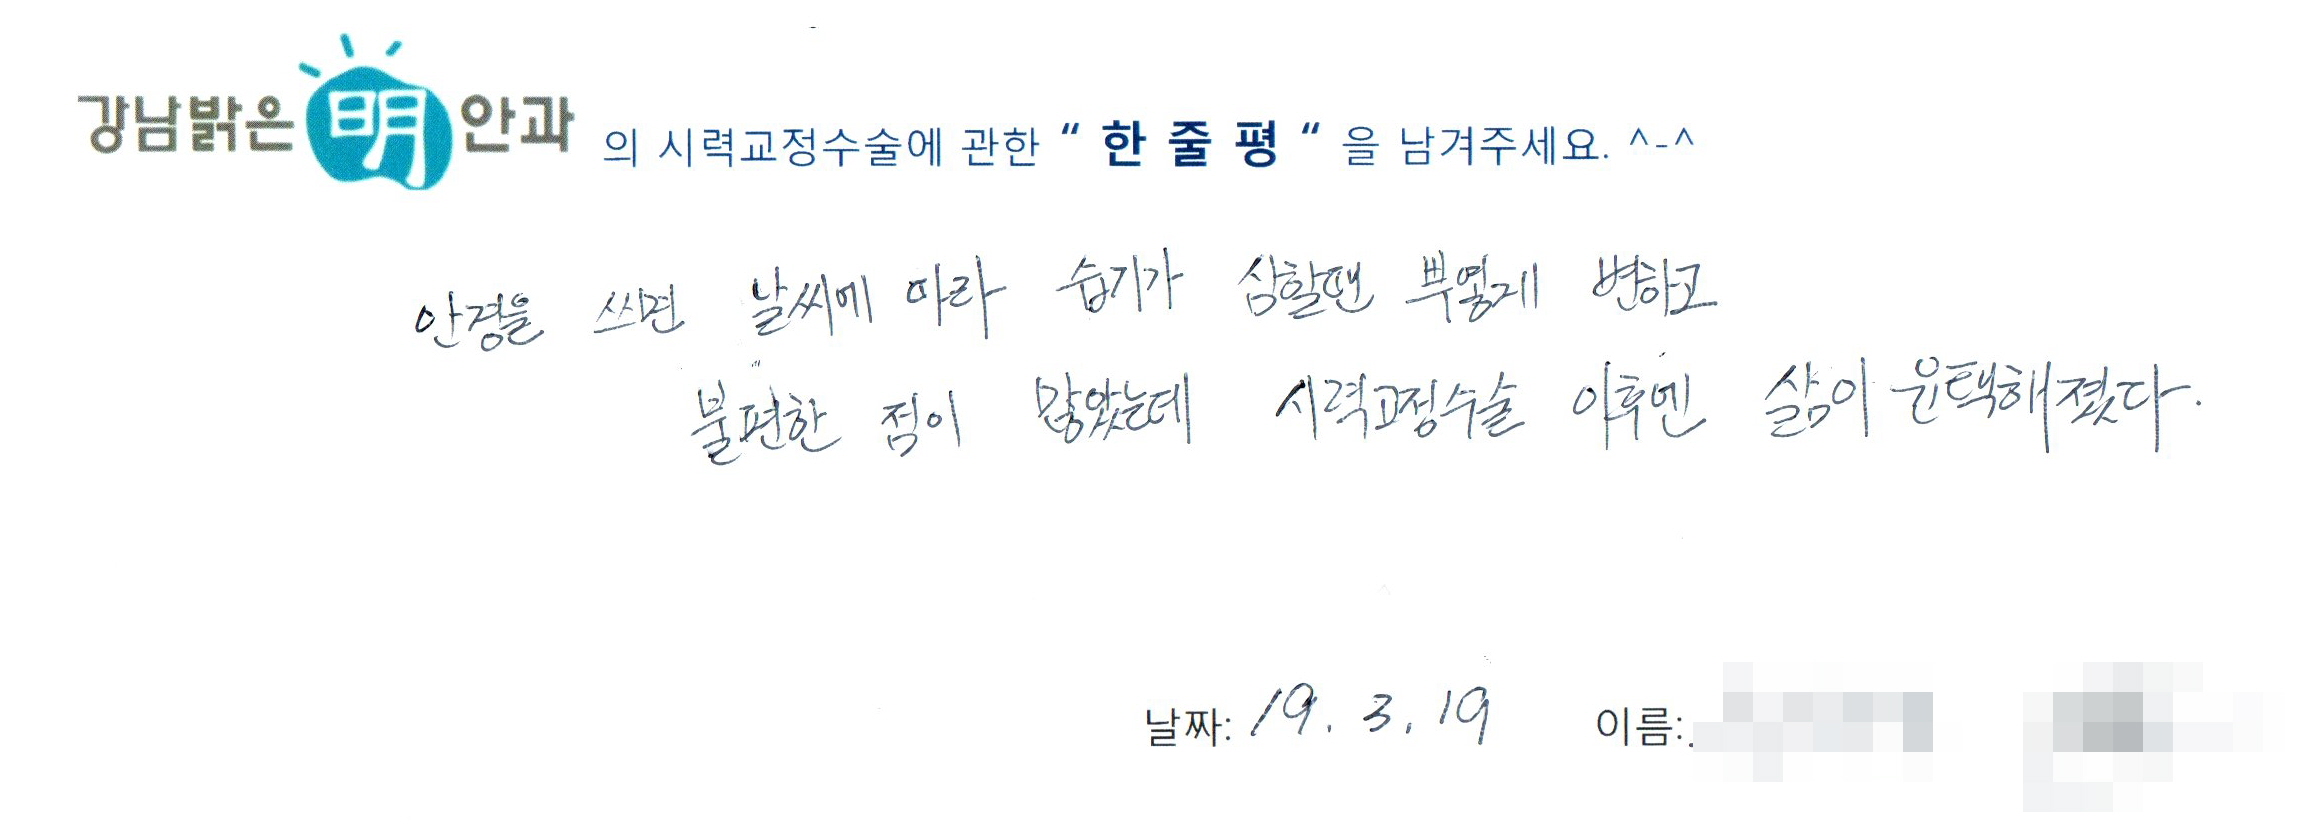 강남밝은明안과 의 시력교정수술에 관한 " 한 줄 평 " 을 남겨주세요. ^-^
안경을 쓰면 날씨에 따라 습기가 심할땐 뿌옇게 변하고
불편한 점이 많았는데 시력교정수술 이후엔 삶이 윤택해졌다.
날짜: 19. 3. 19 이름: